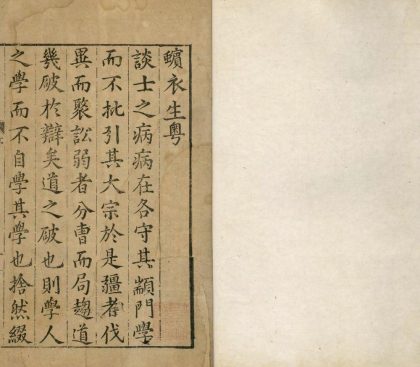 蠙衣生粵
談士之病病在各守其顓門學
而不批引其大宗於是彊者伐
異而聚訟弱者分曹而局趨道
幾破於辯矣道之破也則學人
之學而不自學其學也捨然綴